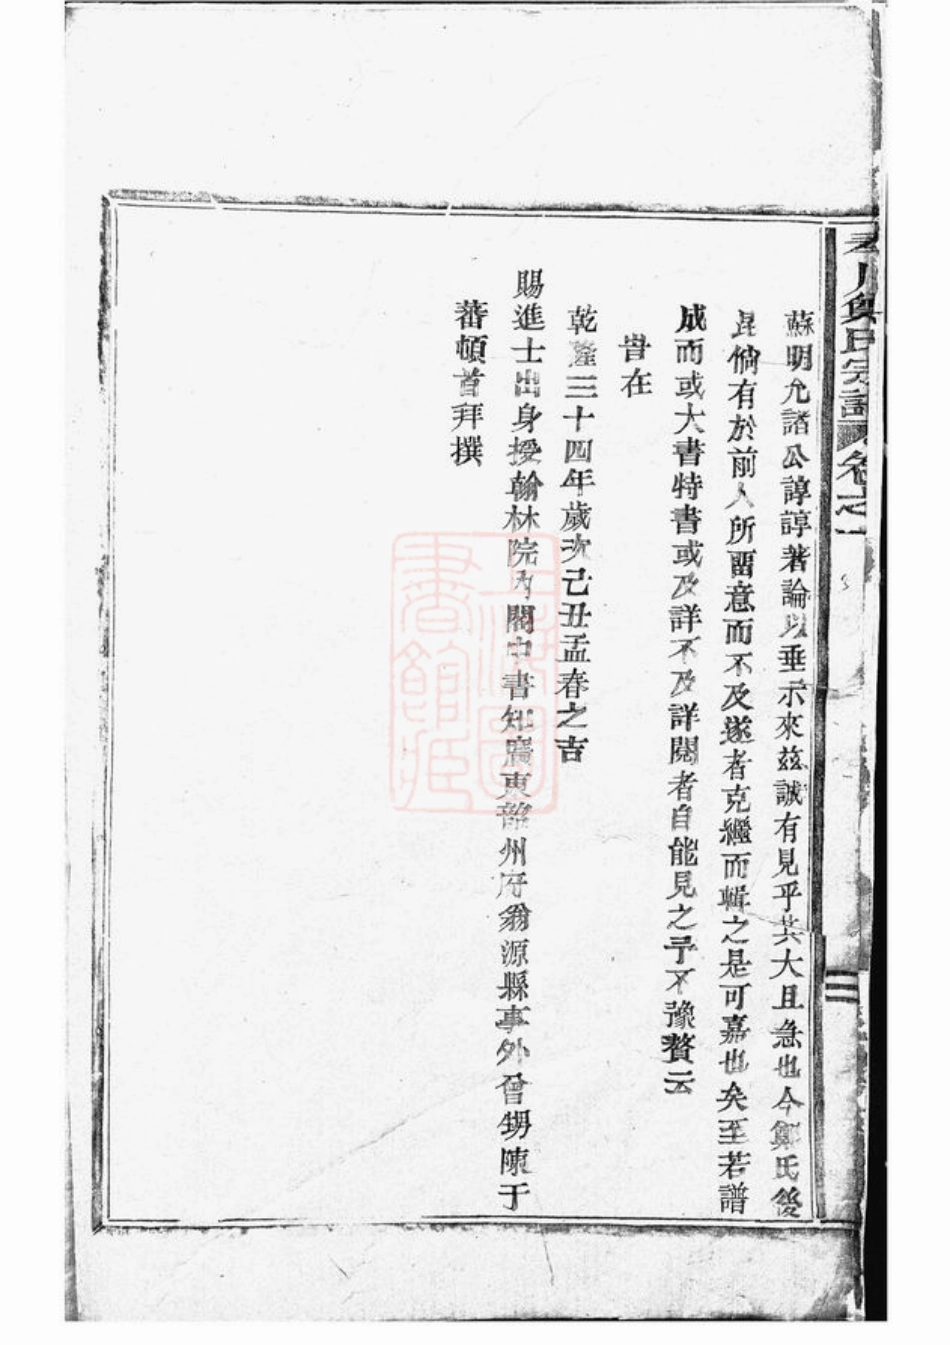 鄭氏宗譜 卷之一
蘇明允諸公諄諄著論以垂示來茲誠有見乎其大且急也今鄭氏後
昆倘有於前人所畱意而不及遂者克繼而輯之是可嘉也矣至若譜
成而或大書特書或及詳不及詳閱者自能見之予不豫贅云
旹在
乾隆三十四年歲次己丑孟春之吉
賜進士出身授翰林院內閣中書知廣東韶州府翁源縣事外曾甥陳于
蕃頓首拜撰
二
上海圖書館藏